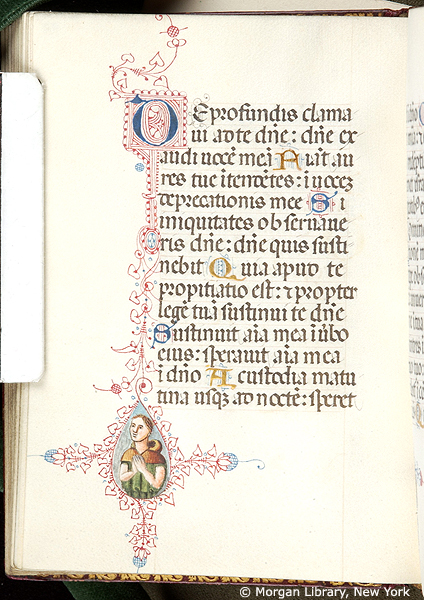 DE profundis clama
ui ad te dñe: dñe ex
audi uocẽ meã Fiãt au
res tue ĩtendẽtes: ĩ uocẽ
deprecationis mee Si
iniquitates obseruaue
ris dñe: dñe quis susti
nebit Quia apud te
propitiatio est: ⁊ propter
legẽ tuã sustinui te dñe
Sustinuit aĩa mea ĩ ũbo
eius: sperauit aĩa mea
ĩ dño A custodia matu
tina usqꝫ ad noctẽ: speret
© Morgan Library, New York